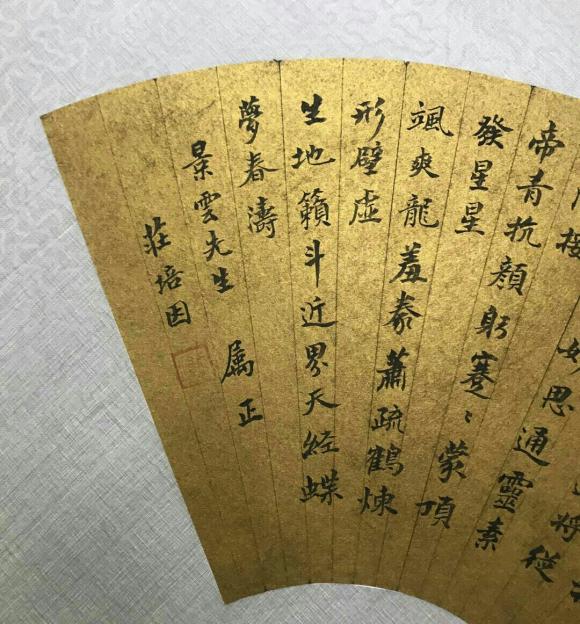 將從
妙思通靈素
接
帝青抗顏躬蹇〻蒙頂
發星星
颯爽龍羞泰蕭疏鶴煉
形壁虛
生地籟斗近界天經蝶
夢春濤
景雲先生 屬正
莊培因